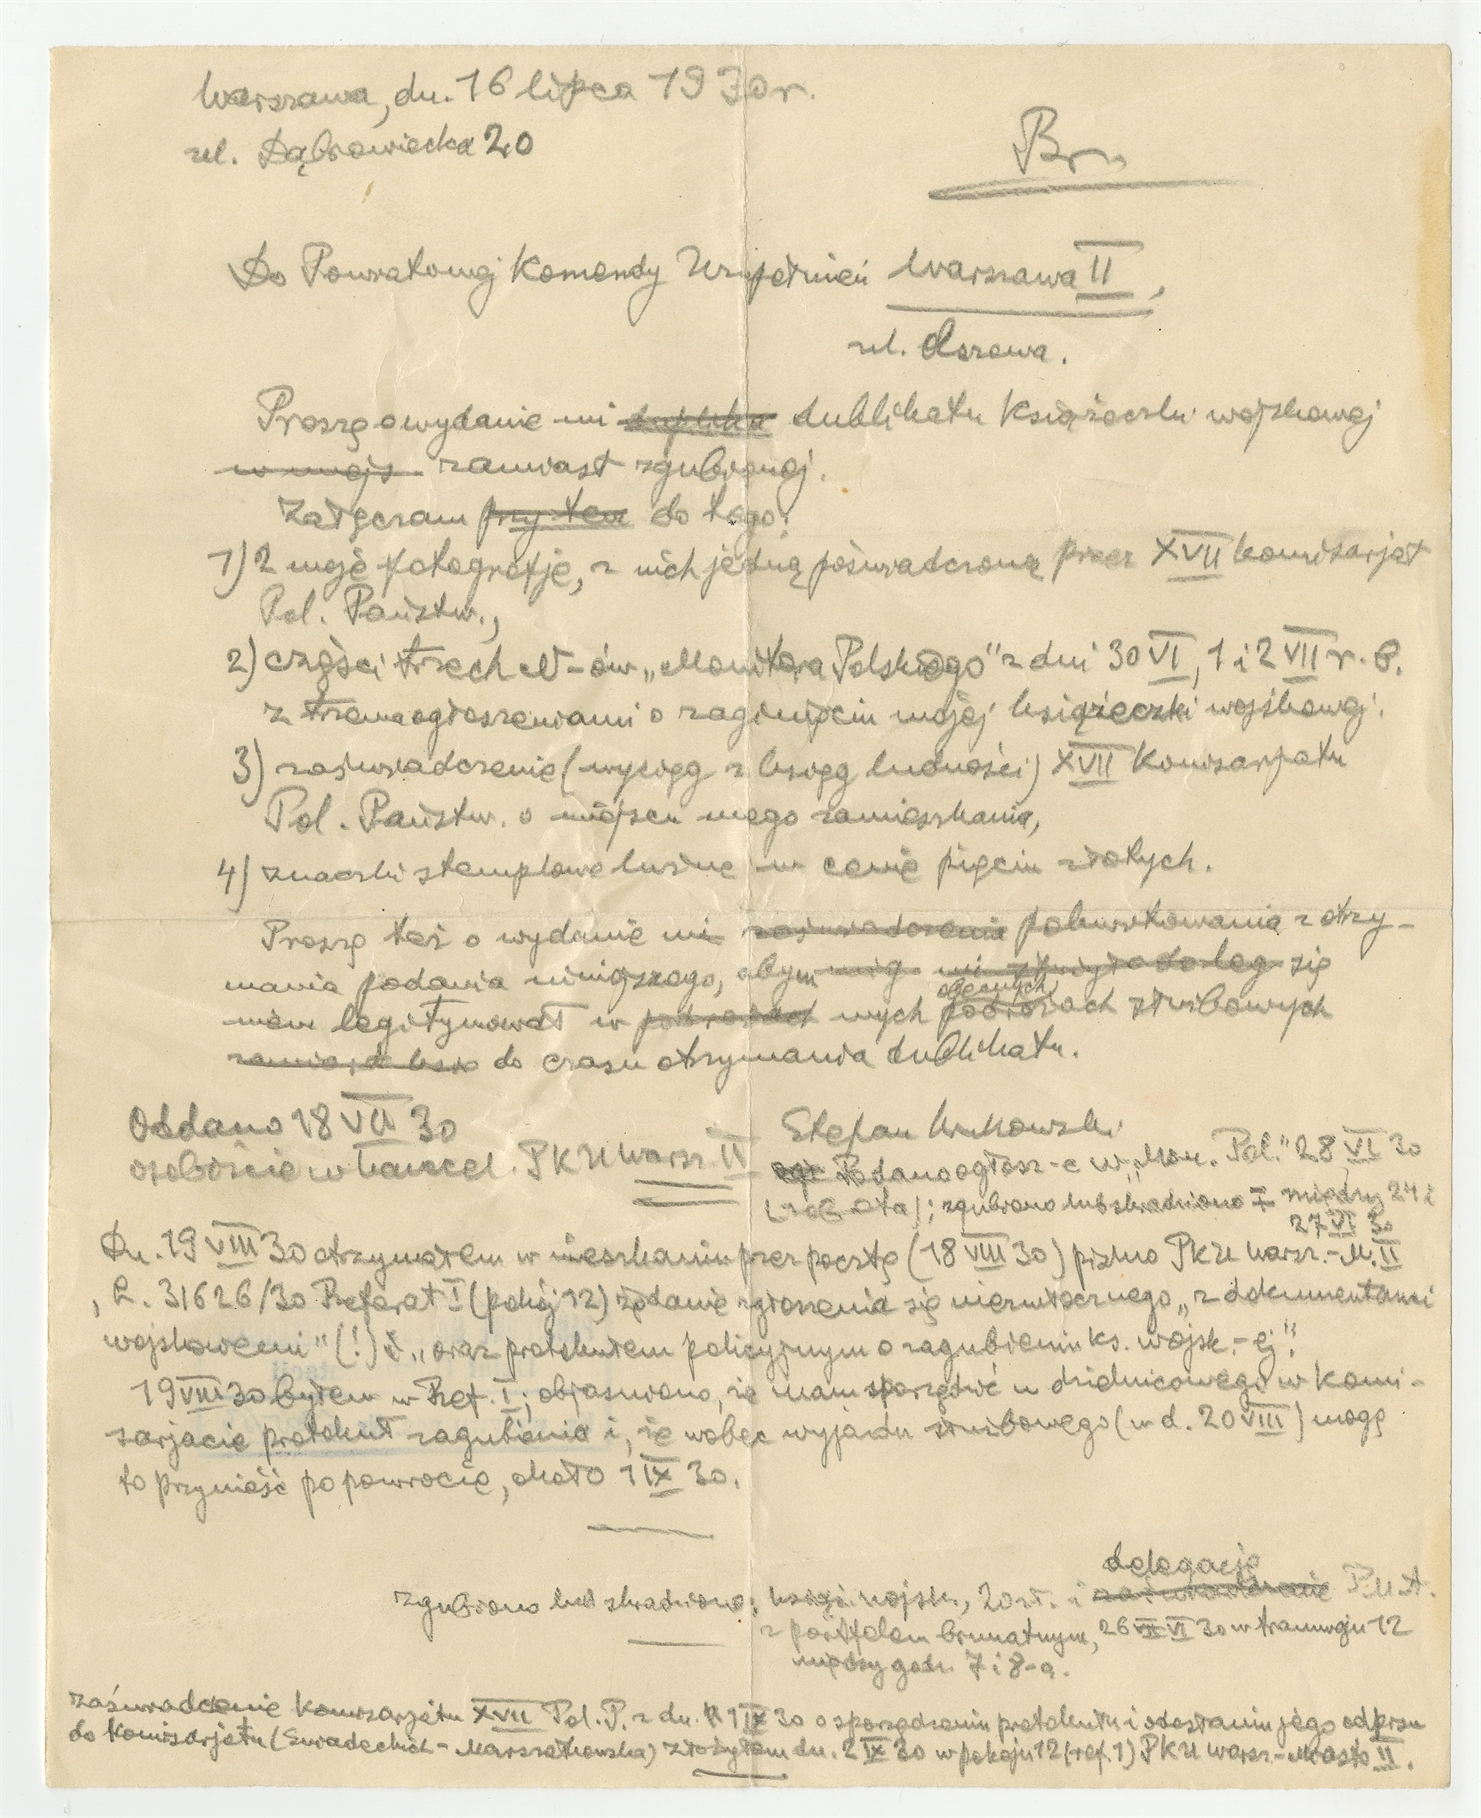 Warszawa, dn. 16 lipca 1930 r.
ul. Dąbrowiecka 20
Br.
Do Powiatowej Komendy Uzupełnień Warszawa II,
ul. Szowa.
Proszę o wydanie mi dublikatu książeczki wojskowej
zamiast zgubionej.
Załączam przy tem do tego:
1) 2 moje fotografje, z nich jedną poświadczoną przez XVII komisarjat
Pol. Państw.,
2) części trzech N-ów „Monitora Polskiego" z dni 30 VI, 1 i 2 VII r. b.
z trzema ogłoszeniami o zaginięciu mojej książeczki wojskowej.
3) zaświadczenie (wyciąg z ksiąg ludności) XVII Komisarjatu
Pol. Państw. o miejscu mego zamieszkania,
4) znaczki stemplowe luźne w cenie pięciu złotych.
Proszę też o wydanie mi zaświadczenia pokwitowania z otrzy-
mania podania niniejszego, abym się
niem legitymował w podróżach mych obecnych podróżach służbowych
do czasu otrzymania dublikatu.
Oddano 18 VII 30
osobiście w kancel. PKU Warsz II
Stefan
Podano ogłosz-e w „Mon. Pol." 28 VI 30
(sobota); zgubiono lub skradziono między 24 i
27 VI 30
Dn. 19 VIII 30 otrzymałem w mieszkaniu przez pocztę (18 VIII 30) pismo PKU Warsz.-M. II
L. 31626/30 Referat I (pokój 12) żądanie zgłoszenia się niezwłocznego „z dokumentami
wojskowemi" (!) i „oraz protokułem policyjnym o zagubieniu ks. wojsk.-ej".
19 VIII 30 byłem w Ref. I; objaśniono, że mam sporządzić u dzielnicowego w komi-
sarjacie protokuł zagubienia i, że wobec wyjazdu służbowego (w d. 20 VIII) mogę
to przynieść po powrocie, około 1 IX 30.
zgubiono lub skradziono: książ. wojsk., 20 zł. i zaświadczenie delegację
z portfelem brunatnym, 26 VII VI 30 w tramwaju 12
między godz. 7 i 8-ą.
Zaświadczenie Komisarjatu XVII Pol. P. z dn. 1 IX 30 o sporządzeniu protokułu i odesłaniu jego
do Komisarjatu ( - Marszałkowska) złożyłem dn. 2 IX 30 w pokoju 12 (ref. 1) PKU Warsz.-Miasto II.